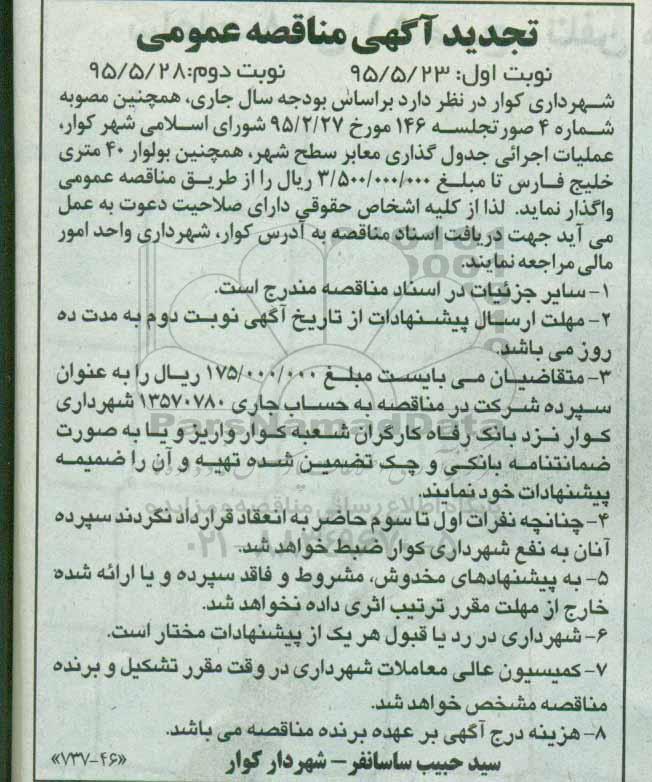 تجدید آگهی مناقصه عمومی
نوبت اول: ۹۵/۵/۲۳ نوبت دوم:۹۵/۵/۲۸
شهرداری کوار در نظر دارد براساس بودجه سال جاری، همچنین مصوبه
شماره ۴ صورتجلسه ۱۴۶ مورخ ۹۵/۲/۲۷ شورای اسلامی شهر کوار،
عملیات اجرائی جدول گذاری معابر سطح شهر، همچنین بولوار ۴۰ متری
خلیج فارس تا مبلغ ۳/۵۰۰/۰۰۰/۰۰۰ ریال را از طریق مناقصه عمومی
واگذار نماید. لذا از کلیه اشخاص حقوقی دارای صلاحیت دعوت به عمل
می آید جهت دریافت اسناد مناقصه به آدرس کوار، شهرداری واحد امور
مالی مراجعه نمایند.
۱- سایر جزئیات در اسناد مناقصه مندرج است.
۲- مهلت ارسال پیشنهادات از تاریخ آگهی نوبت دوم به مدت ده
روز می باشد.
۳- متقاضیان می بایست مبلغ ۱۷۵/۰۰۰/۰۰۰ ریال را به عنوان
سپرده شرکت در مناقصه به حساب جاری ۱۳۵۷۰۷۸۰ شهرداری
کوار نزد بانک رفاه کارگران شعبه کوار واریز و یا به صورت
ضمانتنامه بانکی و چک تضمین شده تهیه و آن را ضمیمه
پیشنهادات خود نمایند.
۴- چنانچه نفرات اول تا سوم حاضر به انعقاد قرارداد نگردند سپرده
آنان به نفع شهرداری کوار ضبط خواهد شد.
۵- به پیشنهادهای مخدوش، مشروط و فاقد سپرده و یا ارائه شده
خارج از مهلت مقرر ترتیب اثری داده نخواهد شد.
۶- شهرداری در رد یا قبول هر یک از پیشنهادات مختار است.
۷- کمیسیون عالی معاملات شهرداری در وقت مقرر تشکیل و برنده
مناقصه مشخص خواهد شد.
۸- هزینه درج آگهی بر عهده برنده مناقصه می باشد.
سید حبیب ساسانفر – شهردار کوار «۷۳۷-۴۶»
ParsNamadData
پایگاه اطلاع رسانی مناقصه و مزایده